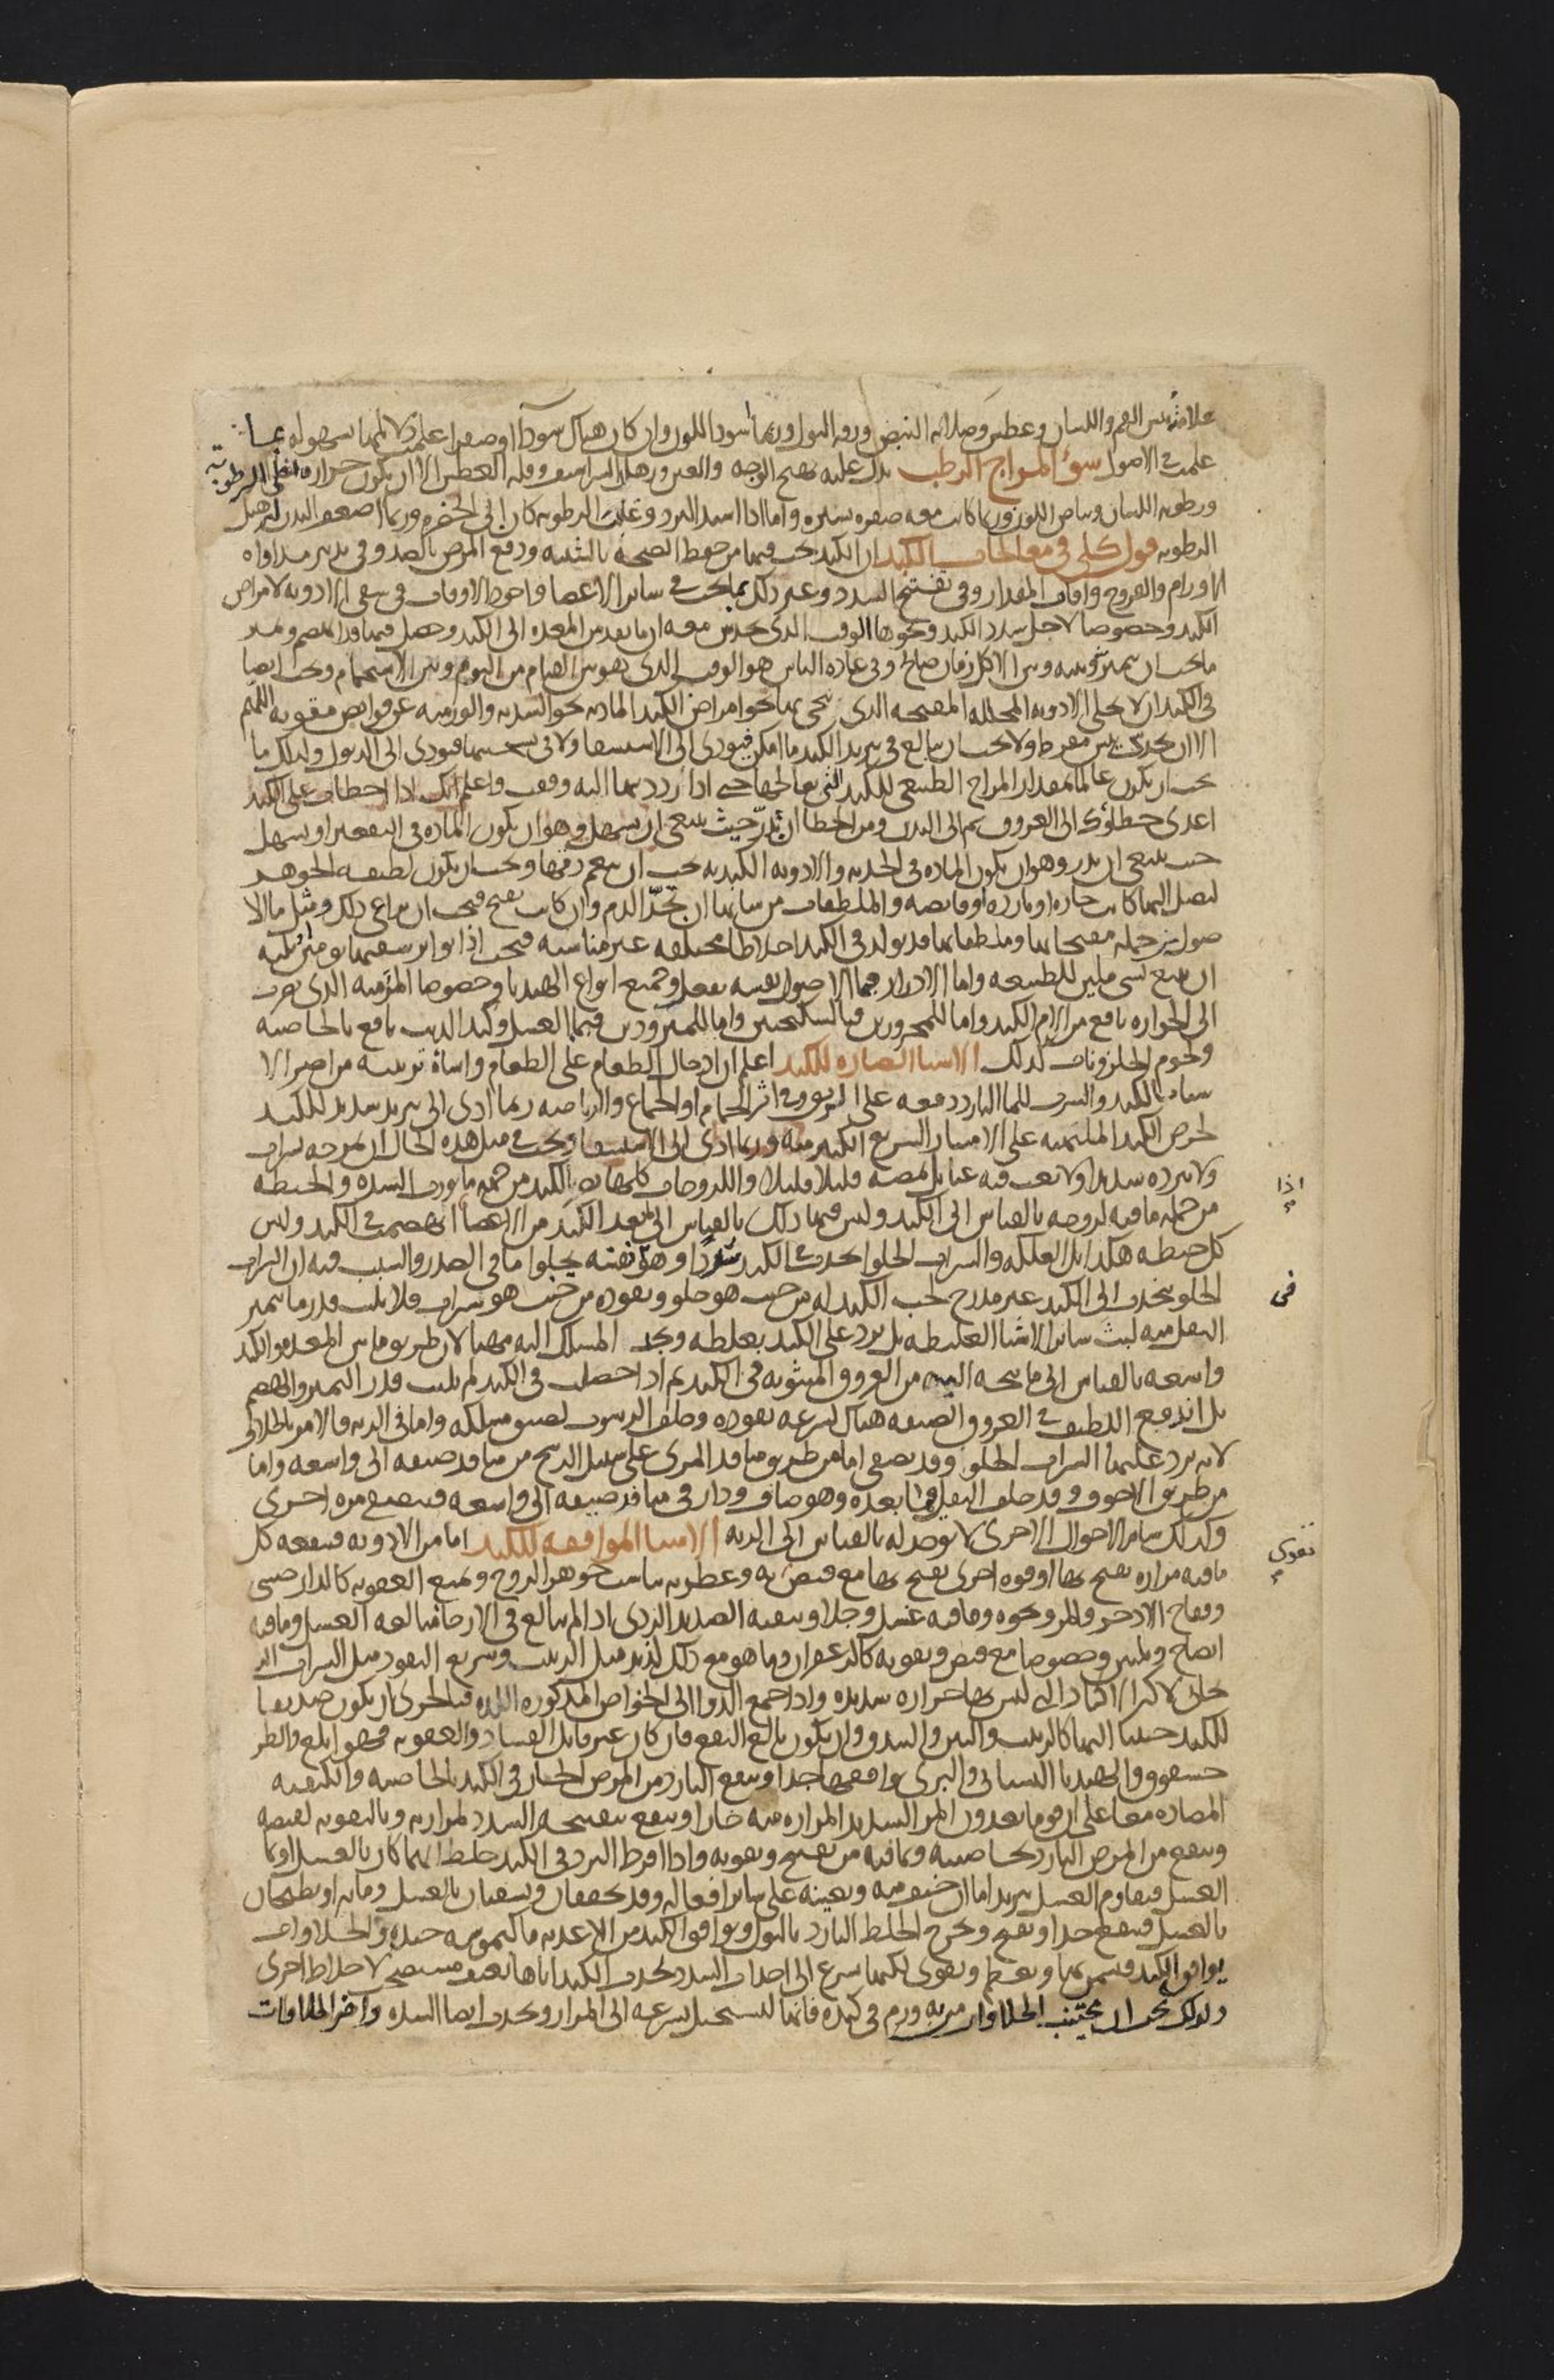 علامته يبس الفم واللسان وعطش وصلابة النبض ورقة البول وربما اسود اللون وان كان هناك سودا او صفرا علمت دلائلهما بسهولة مما
علمت في الاصول سوء المزاج الرطب يدل عليه تهيج الوجه والعين ورهل الشراسيف وقلة العطش الا ان يكون حرارة تغلي الرطوبة
ورطوبة اللسان وبياض اللون وربما كانت معه صفرة يسيرة واما اذا اشتد البرد وغلبت الرطوبة كان الى الخضرة وربما اضعف البدن لترهيل
الرطوبة قول كلي في معالجات الكبد ان الكبد يجب فيها من حفظ الصحة بالشبيه ودفع المرض بالضد وفي تدبير مداواة
الاورام والقروح وآفات المقدار وفي تفتيح السدد وغير ذلك ما يجب في ساير الاعضا واجود الاوقات في سقي الادوية لامراض
الكبد وخصوصا لاجل سدد الكبد ونحوها الوقت الذي يحدس معه ان ما نفذ من المعدة الى الكبد وحصل فيها قد انهضم وتميز
ما يجب ان يتميز وبينه وبين الاكل زمان صالح وفي عادة الناس هو الوقت الذي بين القيام من النوم وبين الاستحمام ويجب ايضا
في الكبد ان لا يخلى الادوية المحللة المفتحة التي ينحى بها نحو امراض الكبد المادية نحو السددية والورمية عن قوابض مقوية اللهم
الا ان يحدث يبس مفرط ولا يجب ان يبالغ في تبريد الكبد ما امكن فيودي الى الاستسقا ولا في تسخينها فيودي الى الذبول ولذلك ما
يجب ان يكون عالما بمقدار المزاج الطبيعي للكبد التي يعالجها حتى اذا ردها اليه وقف واعلم انك اذا اخطات على الكبد
اعدى خطاوك الى العروق ثم الى البدن ومن الخطا ان تدرّ حيث ينبغي ان يسهل وهو ان يكون المادة في التقعير او يسهل
حيث ينبغي ان يدر وهو ان يكون المادة في الحدبة والادوية الكبدية يجب ان ينعم دقها ويجب ان يكون لطيفة الجوهر
ليصل اليها كانت حارة او باردة او قابضة والملطفات من شانها ان تحدّ الدم وان كانت تفتح فيجب ان يراعى ذلك ومثل ماء الا
صول من جملة مفتحاتها وملطفاتها قد يولد في الكبد اخلاطا مختلفة غير مناسبة فيجب اذا تواتر سقيها يومين ثلثة
ان يتبع بشي ملين للطبيعة واما الادرار فما الاصول نفسه يفعله وجميع انواع الهندبا وخصوصا المرة منه الذي تضرب
الى الحرارة نافع من آلام الكبد واما للمحرورين فبالسكنجبين واما للمبرودين فبما العسل وكبد الذيب نافع بالخاصية
ولحوم الحلزونات كذلك الاشيا الضارة للكبد اعلم ان ادخال الطعام على الطعام واساة ترتيبه من اضر الا
شيا بالكبد والشرب للما البارد دفعة على الريق وفي اثر الحمام او الجماع والرياضة ربما ادى الى تبريد شديد للكبد
لحرص الكبد الملتهبة على الامتيار السريع الكثير منه وربما ادى الى الاستسقا ويجب في مثل هذه الحال ان يمزجه بشراب
ولا يبرده شديدا ولا يعب فيه عبا بل يمصه قليلا قليلا واللزوجات كلها تضر بالكبد من جهة ما تورث السدة والحنطة
اذا
من جملة ما فيه لزوجة بالقياس الى الكبد وليس فيها ذلك بالقياس الى ما بعد الكبد من الاعضا انهضمت في الكبد وليس
كل حنطة هكذا بل العلكة والشراب الحلو يحدث في الكبد سددا وهو نفسه يجلو ما في الصدر والسبب فيه ان الشراب
في
الحلو ينجذب الى الكبد غير مدرج لحب الكبد له من حيث هو حلو ونفوذه من حيث هو شراب فلا يلبث قدر ما يتميز
الثفل منه لبث ساير الاشيا الغليظة بل يرد على الكبد بغلظه ويجد المسلك اليه مهيا لان طريق ما بين المعدة والكبد
واسعة بالقياس الى ما يتجه اليه من العروق المبثوثة في الكبد ثم اذا حصلت في الكبد لم يلبث قدر التميز والهضم
بل اندفع اللطيف في العروق الضيقة هناك لسرعة نفوذه وخلف الرسوب لضيق مسلكه واما في الرية فالامر بالخلاف
لانه يرد عليها الشراب الحلو وقد تصفى اما من طريق منافذ المري على سبيل الرشح من منافذ ضيقة الى واسعة واما
من طريق الاجوف وقد خلف الثفل فيما بعده وهو صاف ودار في منافذ ضيقة الى واسعة فيتصفى مرة اخرى
وكذلك ساير الاحوال الاخرى لا توجد له بالقياس الى الرية الاشيا الموافقة للكبد اما من الادوية فينفعه كل
ما فيه مرارة يفتح بها او قوة اخرى تفتح بها مع قبض به وعطرية يناسب جوهر الروح ويمنع العفونة كالدارصيني
تقوي
وفقاح الاذخر والمر ونحوه وما فيه غسل وجلا وتنقية الصديد الردي اذا لم يبالغ في الارخا مبالغة العسل وما فيه
انضاج وتليين وخصوصا مع قبض وتقوية كالزعفران وما هو مع ذلك لذيذ مثل الزبيب وسريع النفوذ مثل الشراب الر
يحاني لاكثر الاكباد التي ليس بها حرارة شديدة واذا جمع الدوا الى الخواص المذكورة اللذة فبالحرى ان يكون صديقا
للكبد حبيبا اليها كالزبيب والتين والبندق وان يكون بالغ النفع فان كان غير قابل الفساد والعفونة فهو ابلغ والطر
حشقوق والهندبا البستاني والبري يوافقها جدا وينفع البارد من المرض الحار في الكبد بالخاصية والكيفية
المضادة معا على ان قوما يعدون المر الشديد المرارة منه حارا وينفع بتفتيحه السدد لمرارته وبالتقوية لقبضه
وينفع من المرض البارد بخاصية وبما فيه من تفتيح وتقوية واذا افرط البرد في الكبد خلط ايهما كان بالعسل او بما
العسل فيقاوم العسل تبريدا ما ان خيف منه ويعينه على ساير افعاله وقد يجففان ويسقيان بالعسل ومائه او يطبخان
بالعسل فينفع جدا ويفتح ويخرج الخلط البارد بالبول ويوافق الكبد من الاغذية ما كيموسه جيدة والحلاوات
يوافق الكبد فيسمن بها ويعظم ويقوى لكنها تسرع الى احداث السدد لجذب الكبد اياها بعنف مستصحبا لاخلاط اخرى
ولذلك يجب ان يجتنب الحلاوات من به ورم في كبده فانها تستحيل بسرعة الى المرار وتحدث ايضا السدة واضر الحلاوات